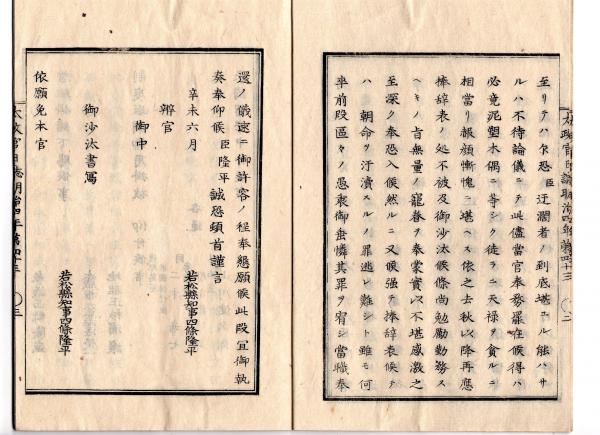 至リテハ乍恐臣迂濶者ノ到底堪ユル能ハサ
ルハ不待論儀ニテ此儘當官奉務罷在候得ハ
必竟泥塑木偶ニ等シク徒ラニ天禄ヲ貪ルニ
相當リ報顔慚愧ニ堪ヘス依之去秋以降再應
捧辞表ノ処不被及御沙汰候條尚勉勵勤務ス
ヘキノ旨無量ノ寵眷ヲ奉蒙實以不堪感激之
至深ク奉恐入候然ルニ又候強テ捧辞表候テ
ハ 朝命ヲ汙瀆スルノ罪逃レ難シト雖モ何
卒前段區々ノ愚衷御垂憐其罪ヲ宥シ當職奉
還ノ儀速ニ御許容ノ程奉懇願候此段宜御執
奏奉仰候臣隆平誠恐頓首謹言
辛未六月 若松縣知事四條隆平
辨官
御中
御沙汰書寫
若松縣知事四條隆平
依願免本官
太政官日誌明治四年第四十三
三